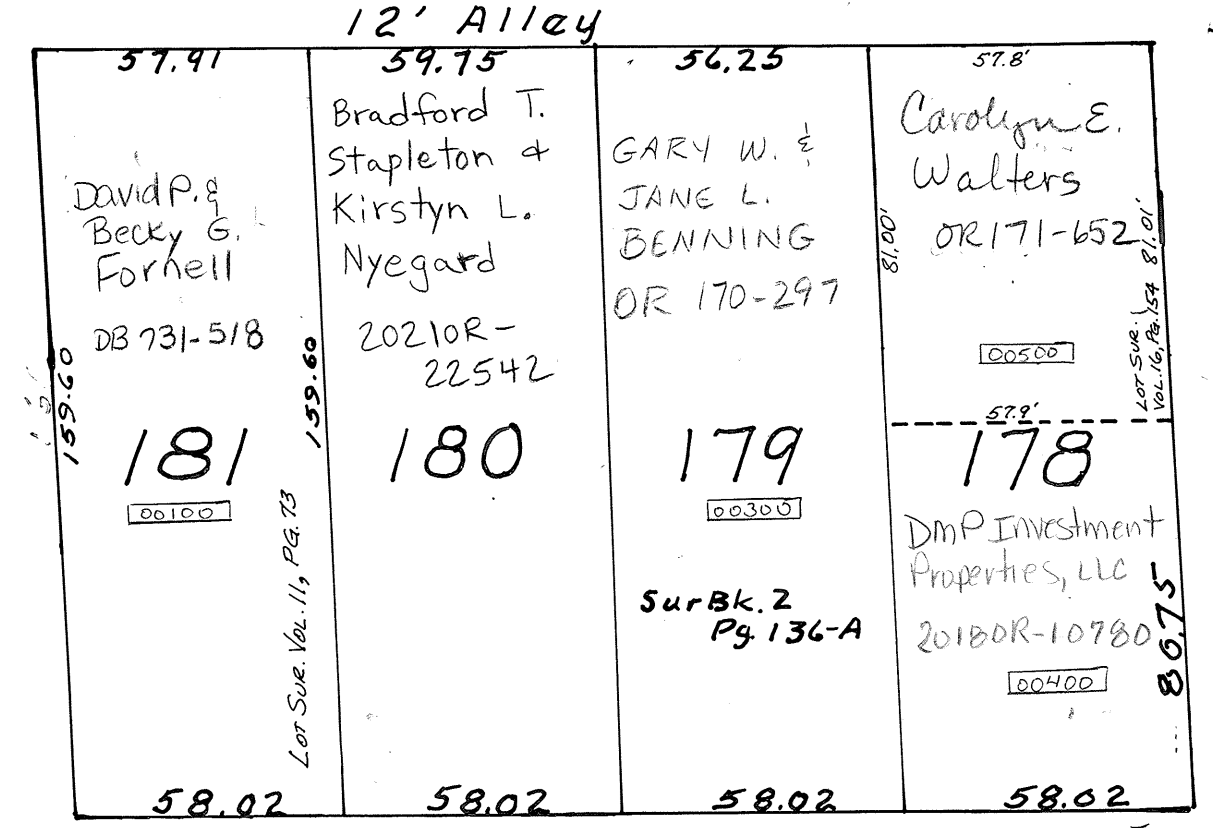 12' Alley
57.91
59.75
56.25
57.8'
David P. &
Becky G.
Fornell
DB 731-518
159.60
181
00100
LOT SUR. VOL. 11, PG. 73
159.60
58.02
Bradford T.
Stapleton &
Kirstyn L.
Nyegard
20210R-
22542
180
58.02
GARY W. &
JANE L.
BENNING
OR 170-297
179
00300
Sur Bk. 2
Pg. 136-A
58.02
Carolyn E.
Walters
OR 171-652
81.00'
81.01'
LOT SUR.
VOL. 16, PG. 154
00500
57.9'
178
DMP Investment
Properties, LLC
20180R-10780
00400
80.75
58.02